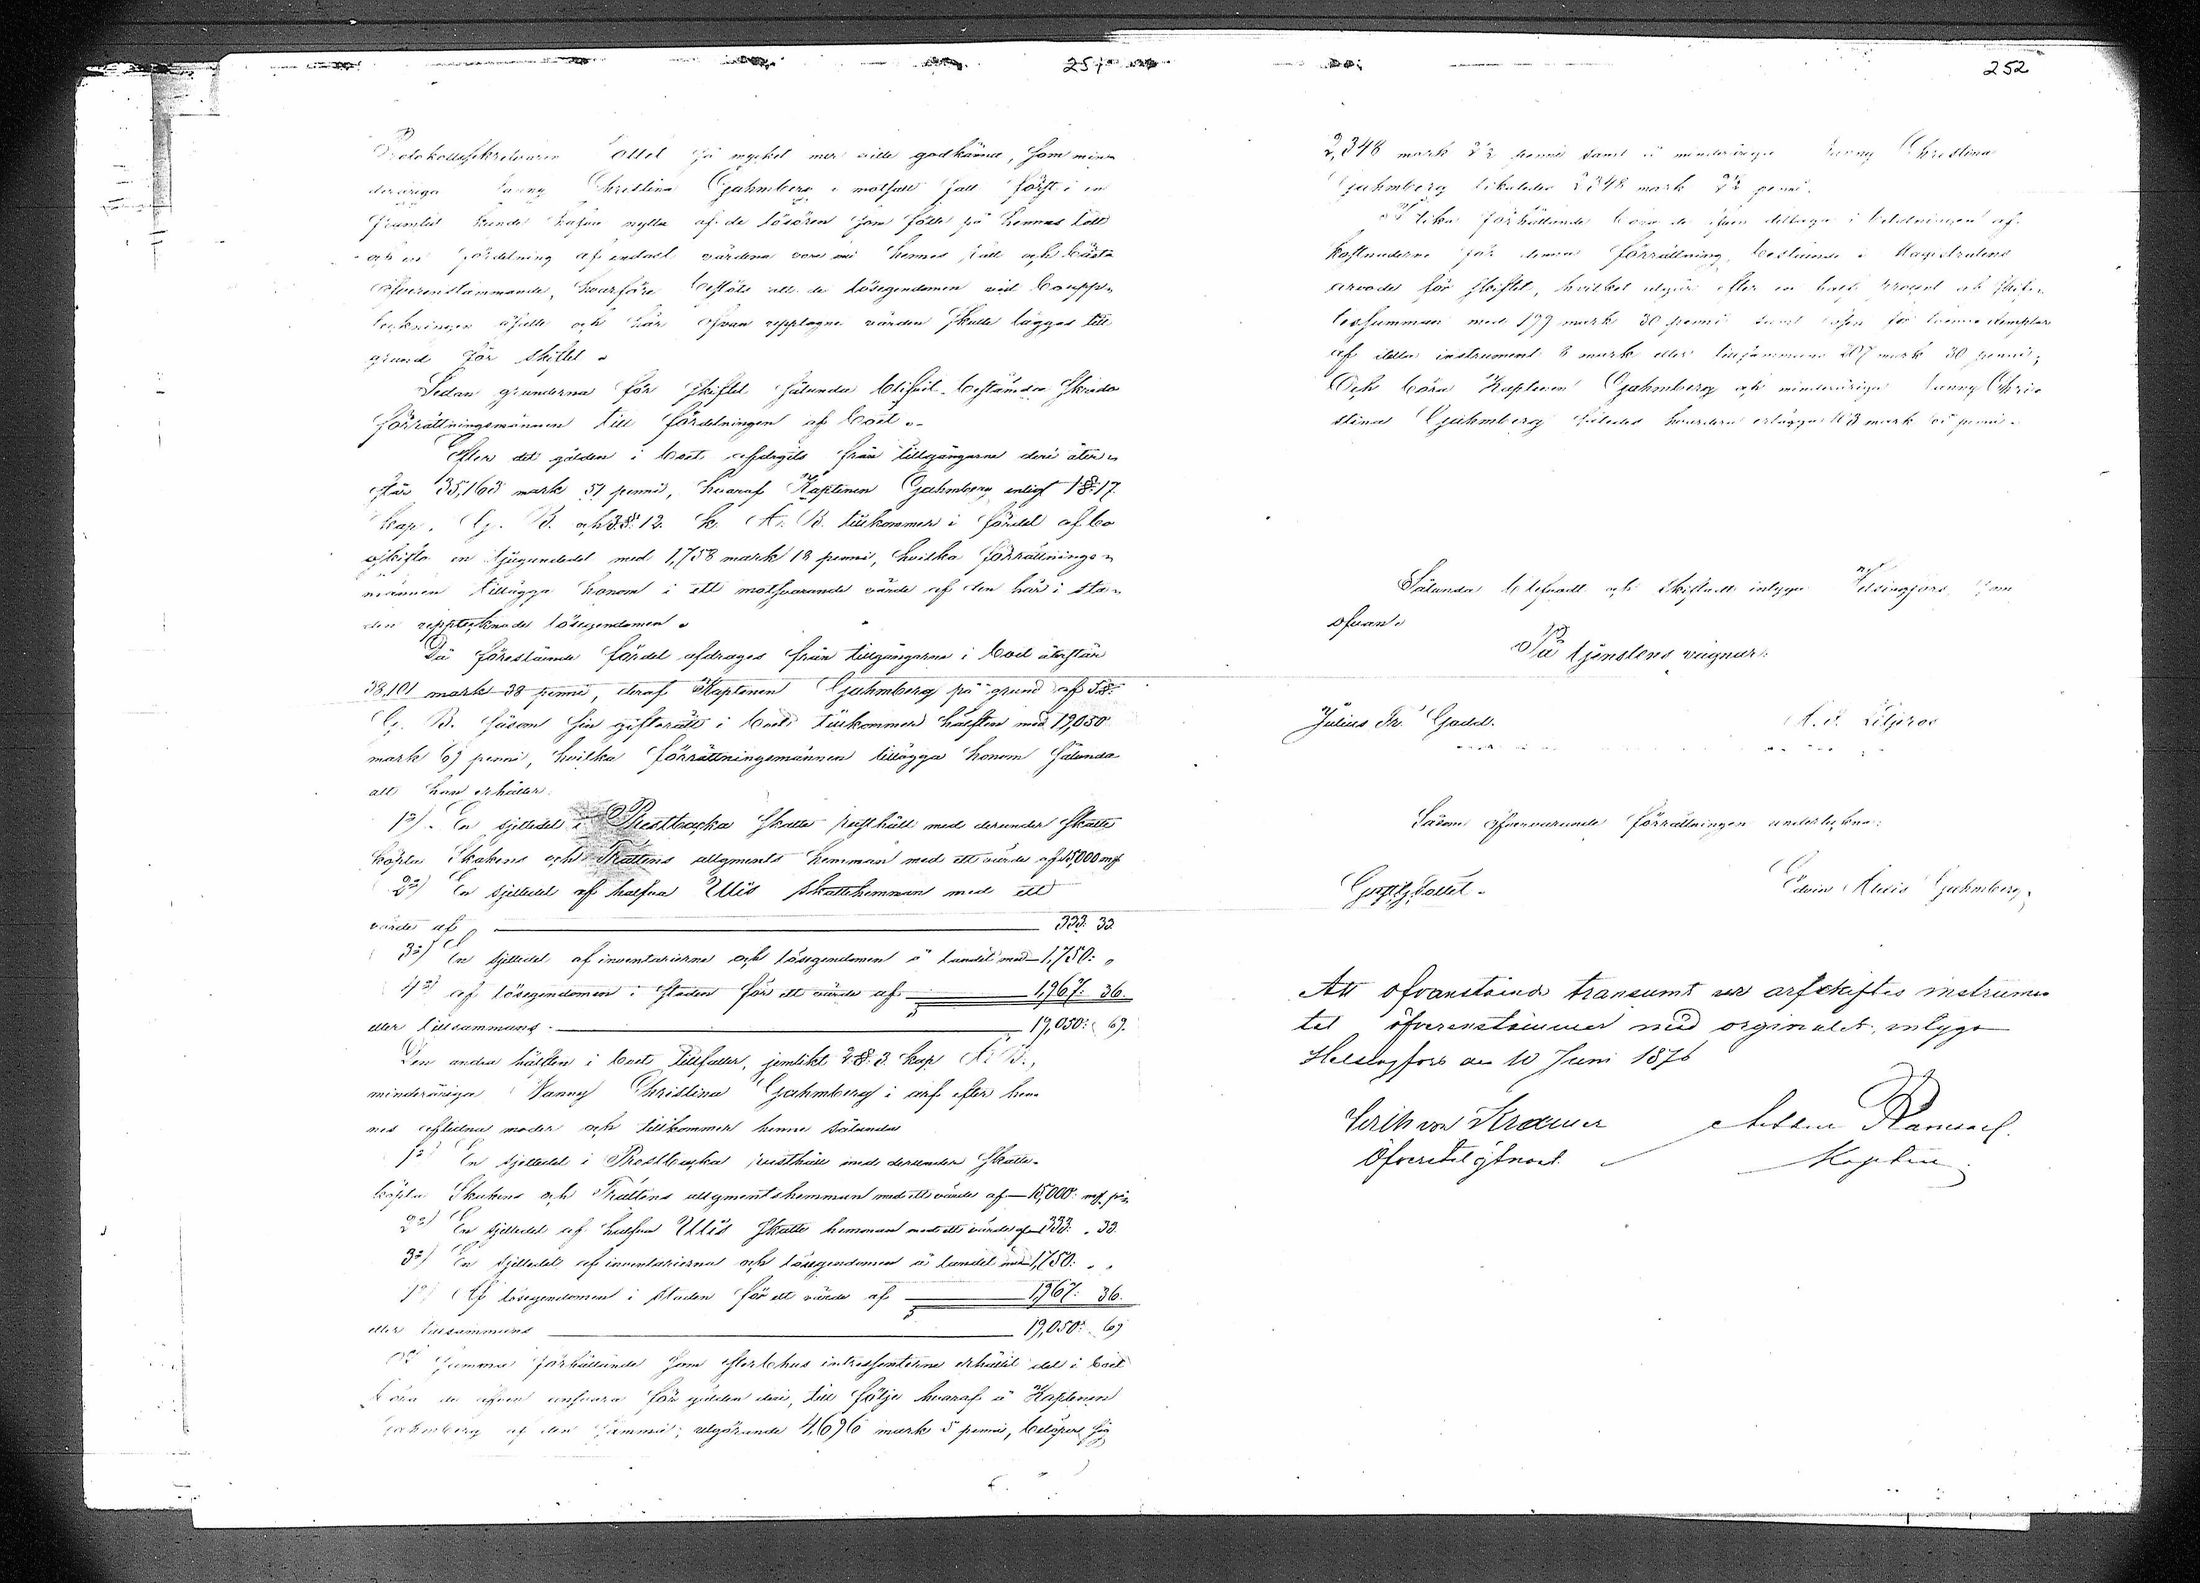 251
Protokollssekreteraren Cottel så mycket mer ville godkänna, som min-
deråriga Nanny Christina Gjahmberg i motsatt fall först i en
framtid kunde hafva nytta af de lösören som fölle på hennes lott
och en fördelning af endast värdena vore med hennes rätt och bästa
öfverensstämmande, hvarföre beslöts att de lösegendomen vid boupp-
teckningen åsatte och här ofvan upptagne värden skulle läggas till
grund för skiftet.
Sedan grunderna för skiftet sålunda blifvit bestämda skreda
förrättningsmännen till fördelningen af boet.
Efter det gälden i boet afdragits från tillgångarne deri åter-
står 35,163 mark 57 penni, hvaraf Kaptenen Gjahmberg enligt 1 §. 17.
Kap. G. B. och 3 §. 12. K. Ä. B. tillkommer i fördel af bo
oskifto en tjugondedel med 1,758 mark 18 penni, hvilka förrättnings-
männen tillägga honom i ett motsvarande värde af den här i sta-
den upptecknade lösegendomen.
Då förestående fördel afdrages från tillgångarne i boet återstår
38,101 mark 38 penni, deraf Kaptenen Gjahmberg på grund af
G. B. såsom sin giftorätt i boet tillkommer hälften med 19,050
mark 69 penni, hvilka förrättningsmännen tillägga honom sålunda
att han erhåller:
1o) En sjettedel i Prestbacka skatte rusthåll med derunder skatte
köpta Skakens och Trättens augments hemman med ett värde af 15,000 mf
2o) En sjettedel af halfva Ullis skattehemman med ett
värde af 333. 33
3o) En sjettedel af inventarierna och lösegendomen å landet med 1,750: „
4o) af lösegendomen i staden för ett värde af 1,967: 36.
eller tillsammans 19,050: 69.
Den andra hälften i boet tillfaller, jemlikt 2 §. 3. Kap Ä. B.,
minderåriga Nanny Christina Gjahmberg i arf efter hen-
nes aflidna moder och tillkommer henne sålunda
1o) En sjettedel i Prestbacka rusthåll med derunder skatte-
köpta Skakens och Trättens augmentshemman med ett värde af 15,000: mf pi.
2o) En sjettedel af halfva Ullis skatte hemman med ett värde af 333: 33.
3o) En sjettedel af inventarierna och lösegendomen å landet med 1,750: „
4o) Af lösegendomen i staden för ett värde af 1,967: 36.
eller tillsammans 19,050: 69
I samma förhållande som sterbhus intressenterne erhållit del i boet
böra de äfven ansvara för gälden deri, till följe hvaraf å Kaptenen
Gjahmberg af den samma, utgörande 4,696 mark 5 penni, belöper sig
252
2,348 mark 22 penni samt å minderåriga Nanny Christina
Gjahmberg likaledes 2348 mark 22 penni.
I lika förhållande böra de äfven deltaga i betalningen af
kostnaderne för denna förrättning, bestående i Magistratens
arvode för skiftet, hvilket utgår efter en half procent af skif-
tessumman med 199 mark 30 penni samt lösen för tvenne exemplar
af detta instrument 8 mark eller tillsammans 207 mark 30 penni;
Och böra Kaptenen Gjahmberg och minderåriga Nanny Chri-
stina Gjahmberg således hvardera erlägga 103 mark 65 penni.
Sålunda blefvadt och skiftadt intyga Helsingfors, som
ofvan.
På tjenstens vägnar:
Julius Fr. Gadd. Liljroos
Såsom öfvervarande förrättningen underteckna:
Cottel. Edvin Alexis Gjahmberg.
Att ofvanstående transumt ur arfskiftes instrumen
tet öfverensstämmer med orginalet, intyga
Helsingfors den 10 Juni 1876
von Kræmer Ramsay.
Öfverstelöjtnant Kapten.